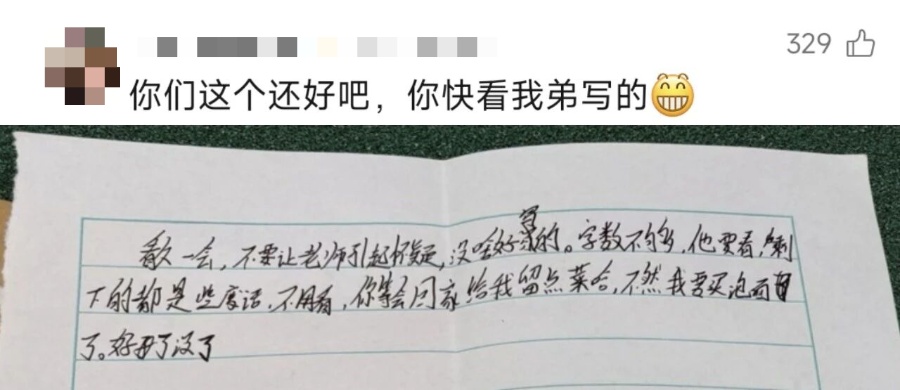 329
你们这个还好吧，你快看我弟写的😁
看久一会，不要让老师引起怀疑，没啥好写的。字数不够，他要看，剩
下的都是些废话，不用看，你等会回家给我留点菜哈，不然我要买泡面
了。好了没了